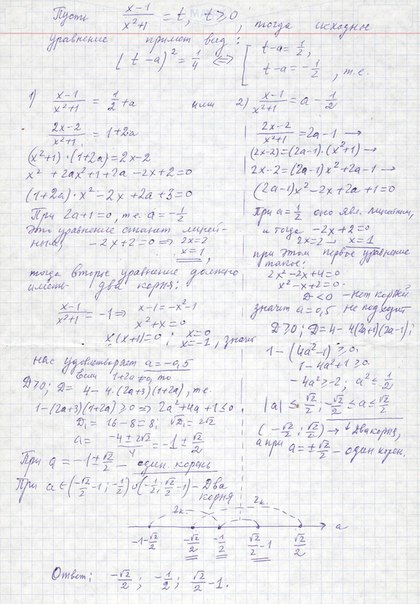 Пусть (x-1)/(x²+1) = t, t ≥ 0, тогда исходное
уравнение примет вид:
(t-a)² = 1/4 ⇔ [ t-a = 1/2,
t-a = -1/2, т.е.
1) (x-1)/(x²+1) = 1/2 + a или 2) (x-1)/(x²+1) = a - 1/2
(2x-2)/(x²+1) = 1+2a
(x²+1)·(1+2a) = 2x-2
x² + 2ax² + 1 + 2a - 2x + 2 = 0
(1+2a)·x² - 2x + 2a + 3 = 0
При 2a+1=0, т.е. a = -1/2
это уравнение станет линей-
ным, -2x+2=0 ⇒ 2x=2
x=1,
тогда второе уравнение должно
иметь два корня:
(x-1)/(x²+1) = -1 ⇒ x-1 = -x²-1
x²+x=0
x(x+1)=0; x=0
x=-1, значит
нас удовлетворяет a=-0,5
если 1+2a≠0, то
D≥0; D = 4-4·(2a+3)(1+2a), т.е
1-(2a+3)(1+2a) ≥ 0 ⇒ 2a²+4a+1 ≤ 0
D₁ = 16-8 = 8; √D₁ = 2√2
a = (-4±2√2)/4 = -1 ± √2/2
При a = -1 ± √2/2 - один корень
При a ∈ (-√2/2 - 1; -1/2) ∪ (-1/2; √2/2 - 1) - два
корня
(2x-2)/(x²+1) = 2a-1 →
(2x-2) = (2a-1)·(x²+1) →
2x-2 = (2a-1)x² + 2a-1 →
(2a-1)x² - 2x + 2a + 1 = 0
при a = 1/2 оно явл. линейным,
и тогда -2x+2=0
2x=2 → x=1
при этом первое уравнение
такое:
2x²-2x+4=0
x²-x+2=0
D<0 - нет корней
значит a=0,5 не подходит
D≥0; D = 4-4(2a+1)(2a-1);
1-(4a²-1) ≥ 0.
1-4a²+1 ≥ 0
-4a² ≥ -2; a² ≤ 1/2
|a| ≤ √2/2; -√2/2 ≤ a ≤ √2/2
(-√2/2; √2/2) → два корня,
а при a = ±√2/2 - один корен.
2к 2к
-1-√2/2 -√2/2 -1/2 √2/2-1 √2/2 a
Ответ: -√2/2; -1/2; √2/2 - 1.